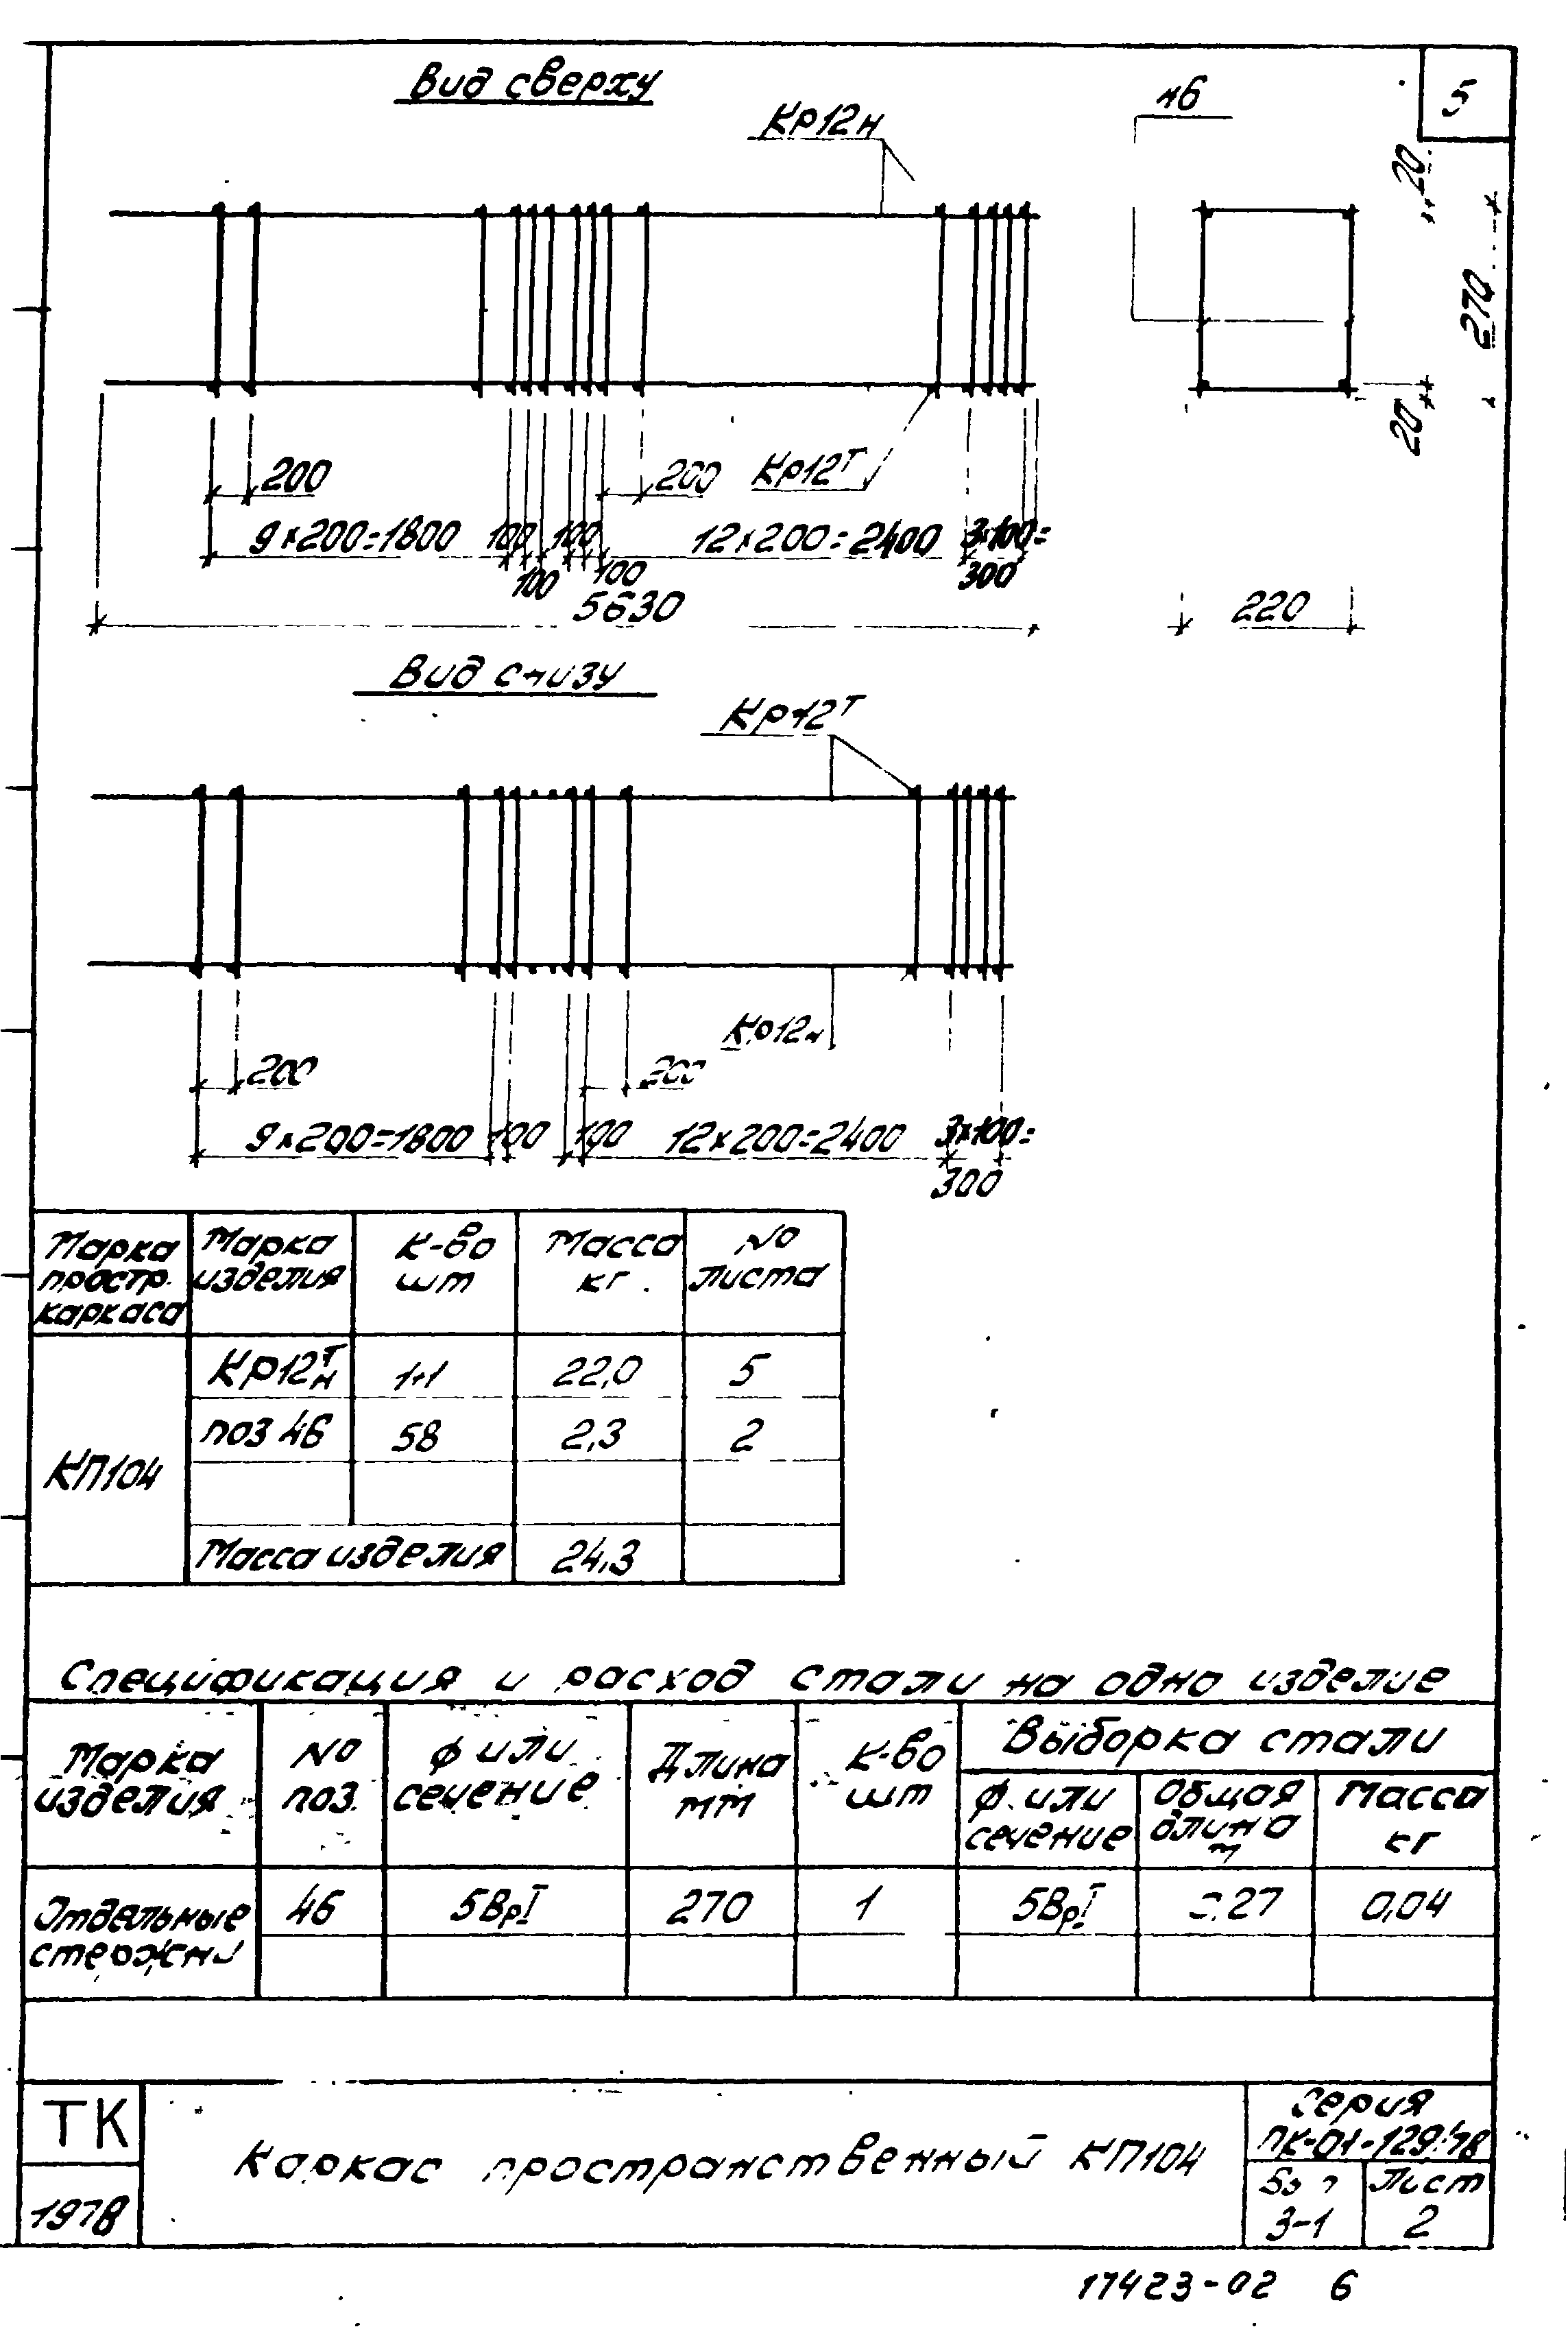 5
Вид сверху
Кр12н
46
20
270
20
200
200
Кр12т
9×200=1800
100
100
100
100
12×200=2400
3×100=
300
5630
220
Вид снизу
Кр12т
Кр12н
200
200
9×200=1800
100
100
12×200=2400
3×100=
300
Марка простр. каркаса
Марка изделия
К-во шт
Масса кг.
№ листа
КП104
Кр12т/н 1+1 22,0 5
поз 46 58 2,3 2
Масса изделия 24,3
Спецификация и расход стали на одно изделие
Марка изделия
№ поз.
ф или сечение
Длина мм
К-во шт
Выборка стали
ф. или сечение
Общая длина м
Масса кг
Отдельные стержни
46 5ВрI 270 1 5ВрI 0.27 0,04
ТК
1978
Каркас пространственный КП104
Серия
ПК-01-129/78
3-1
Лист
2
17423-02 6